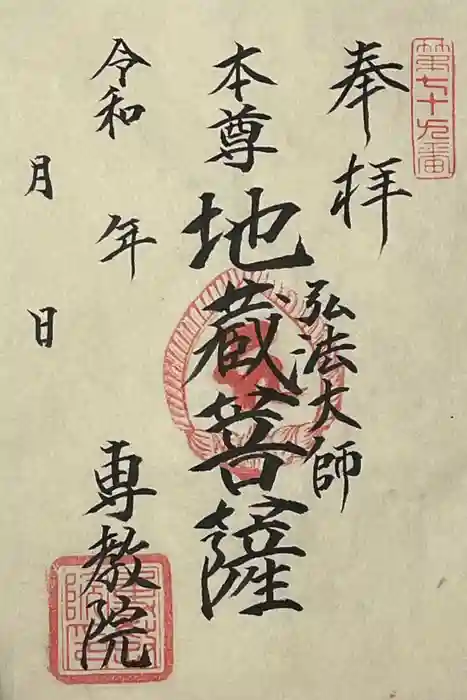 第七十九番
奉拝
弘法大師
本尊地蔵菩薩
令和 年
月 日
専教院